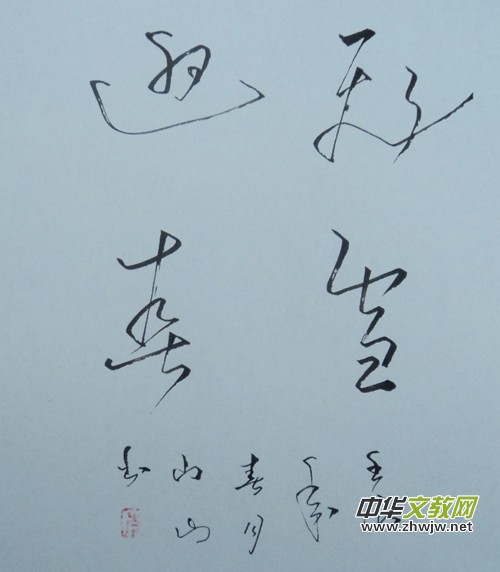 飛雪
迎春
壬
年
春月
山山
书
中华文教网
www.zhwjw.net